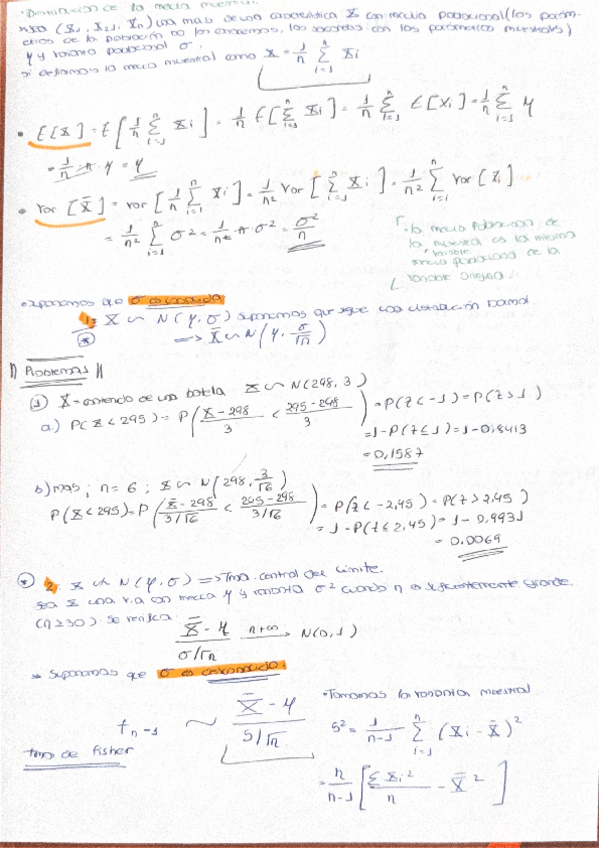 · Distribución de la media muestral.
masa (X₁, X₂, Xₙ) una mas de una característica X con media poblacional (los parám-
etros de la población no los conocemos, los con los parámetros muestrales)
μ y varianza poblacional σ.
si definimos la media muestral como X̄ = 1/n Σ(i=1 → n) Xi
• E[X̄] = E[1/n Σ(i=1 → n) Xi] = 1/n E[Σ(i=1 → n) Xi] = 1/n Σ(i=1 → n) E[Xi] = 1/n Σ(i=1 → n) μ
= 1/n · n · μ = μ
• Var[X̄] = Var[1/n Σ(i=1 → n) Xi] = 1/n² Var[Σ(i=1 → n) Xi] = 1/n² Σ(i=1 → n) Var[Xi]
= 1/n² Σ(i=1 → n) σ² = 1/n² n · σ² = σ²/n
· la media poblacional de
la muestra es la misma
variable
media poblacional de la
variable original
suponemos que σ es conocida
1. X ~ N(μ, σ) suponemos que sigue una distribución normal
* ⟹ X̄ ~ N(μ, σ/√n)
|| Problemas ||
① X = contenido de una botella X ~ N(298, 3)
a) P(X < 295) = P(X - 298 / 3 < 295 - 298 / 3) = P(Z < -1) = P(Z > 1)
= 1 - P(Z ≤ 1) = 1 - 0,8413
= 0,1587
b) mas; n = 6; X̄ ~ N(298, 3/√6)
P(X̄ < 295) = P(X̄ - 298 / 3/√6 < 295 - 298 / 3/√6) = P(Z < -2,45) = P(Z > 2,45)
= 1 - P(Z ≤ 2,45) = 1 - 0,9931
= 0,0069
* 2. X ≁ N(μ, σ) ⟹ Tma. central del límite.
sea X una v.a con media μ y varianza σ² cuando n es suficientemente grande.
(n ≥ 30) se verifica:
X̄ - μ / σ/√n n→∞ ⟶ N(0, 1)
⇒ Suponemos que σ es desconocida:
tₙ₋₁ ~ X̄ - μ / S/√n
· Tomamos la varianza muestral
S² = 1/n-1 Σ(i=1 → n) (Xi - X̄)²
tma de Fisher
= n/n-1 [ΣXi²/n - X̄²]